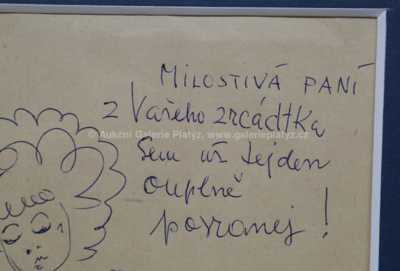 MILOSTIVÁ PANÍ
z Vašeho zrcádtka
sem už tejden
ouplně
posranej!
© Aukční Galerie Platýz, www.galerieplatyz.cz